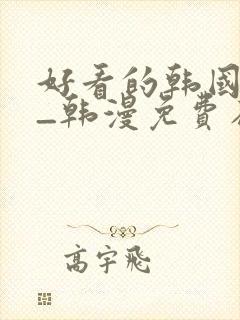 好看的韩国
_韩漫免费
高宇飞